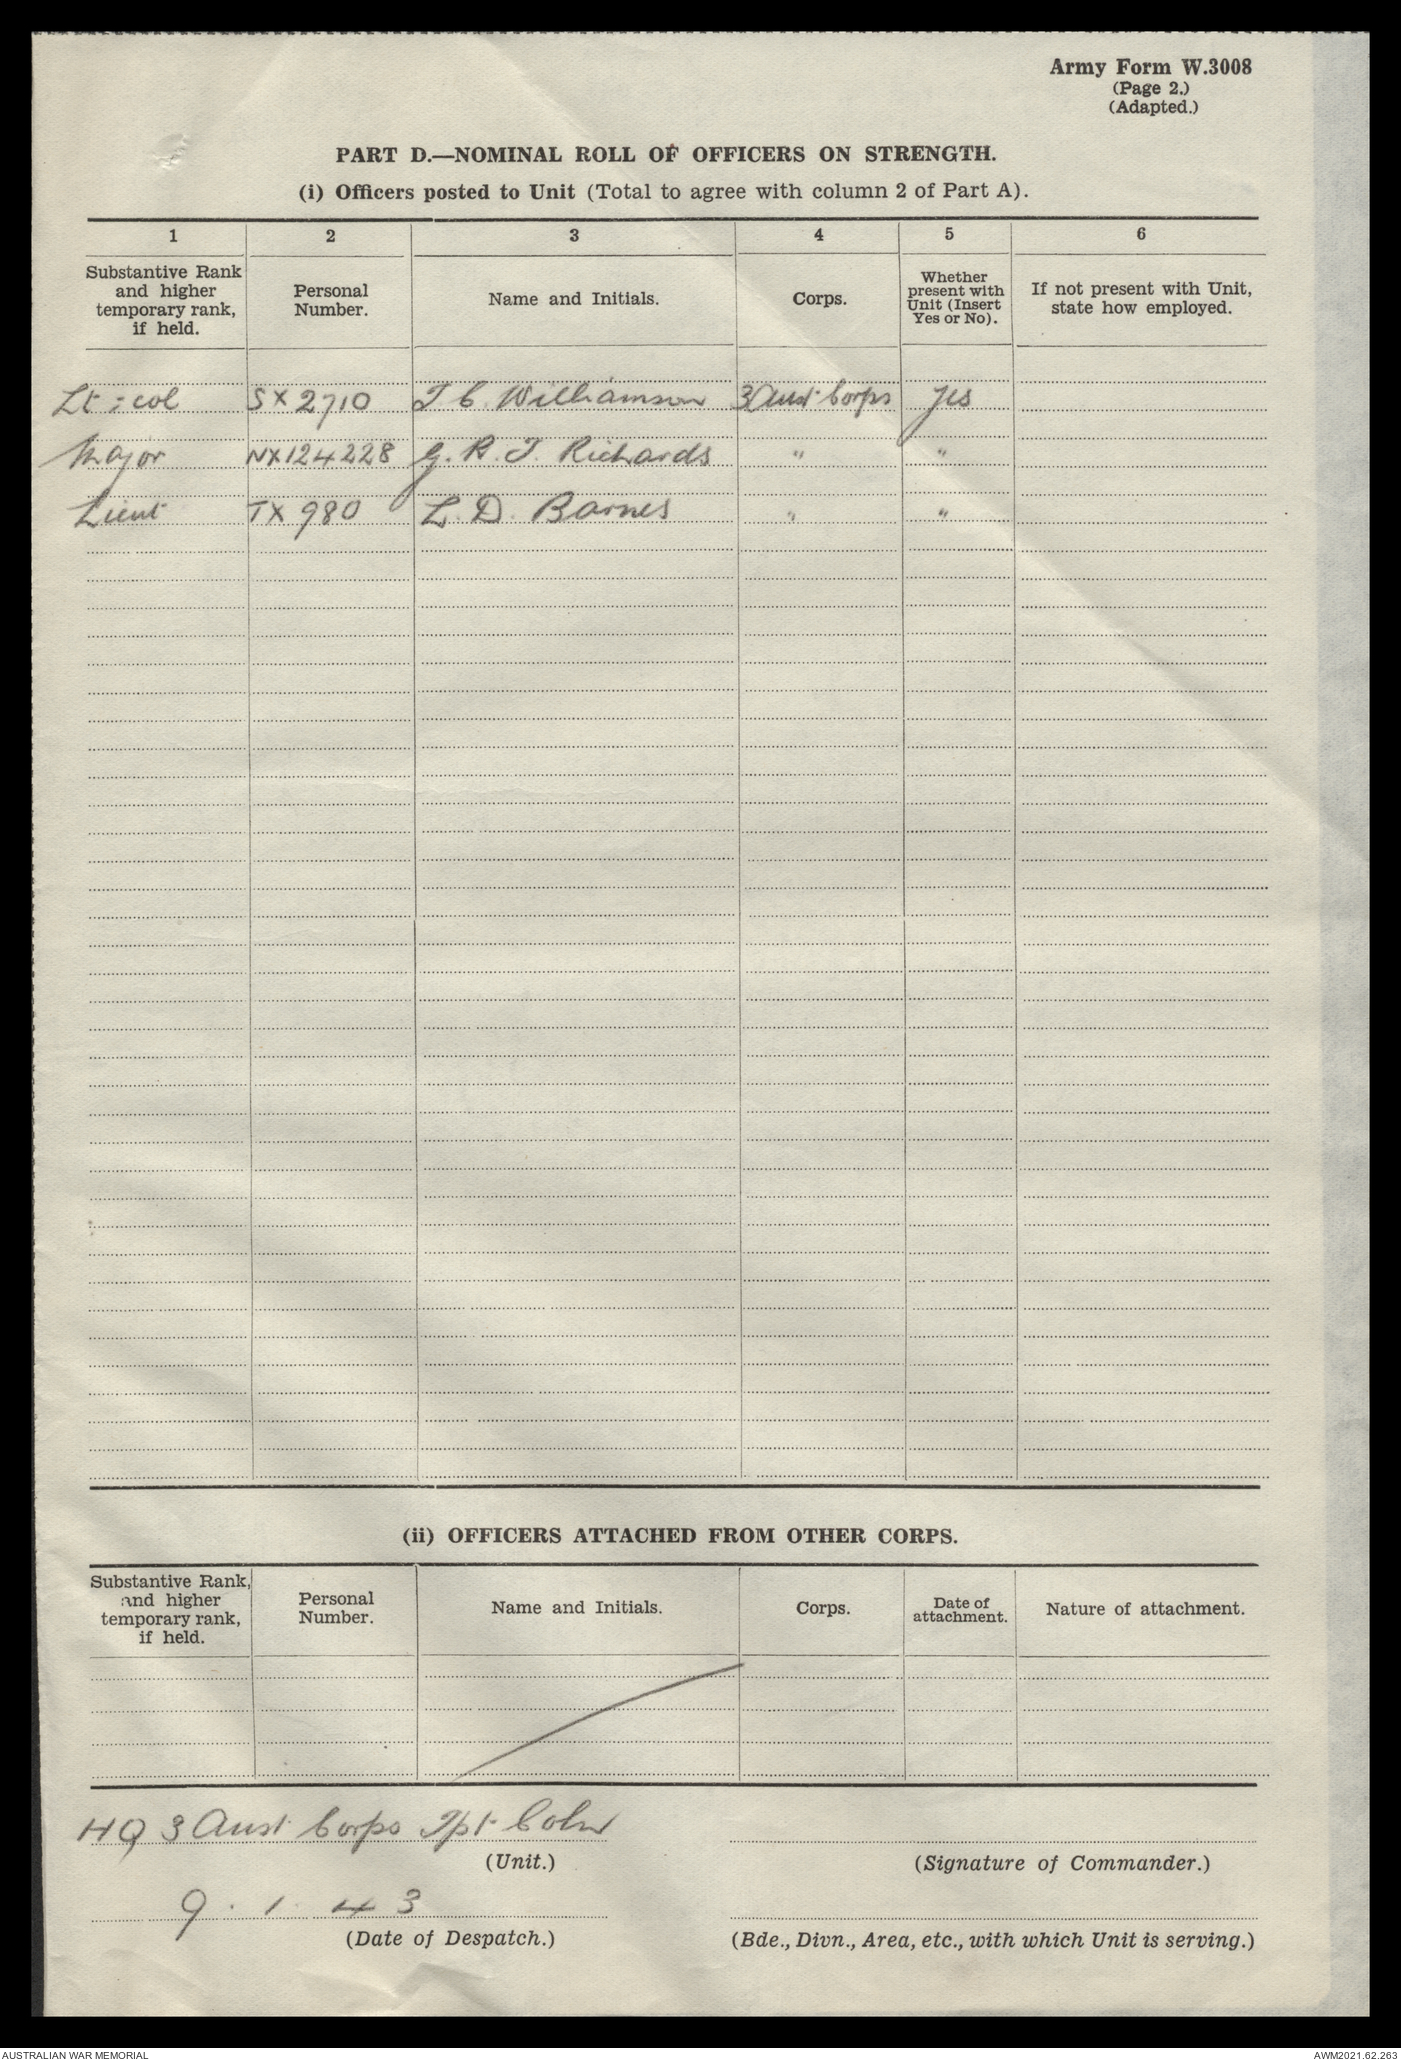 Army Form W.3008
(Page 2.)
(Adapted.)
PART D.—NOMINAL ROLL OF OFFICERS ON STRENGTH.
(i) Officers posted to Unit (Total to agree with column 2 of Part A).
1 2 3 4 5 6
Substantive Rank and higher temporary rank, if held.
Personal Number.
Name and Initials.
Corps.
Whether present with Unit (Insert Yes or No).
If not present with Unit, state how employed.
Lt-col SX2710 T C. Williamson 3 Aust Corps yes
Major NX124228 G. R. T. Richards " "
Lieut TX 980 L. D. Barnes " "
(ii) OFFICERS ATTACHED FROM OTHER CORPS.
Substantive Rank, and higher temporary rank, if held.
Personal Number.
Name and Initials.
Corps.
Date of attachment.
Nature of attachment.
HQ 3 Aust Corps Tpt Coln
(Unit.)
(Signature of Commander.)
9. 1. 43
(Date of Despatch.)
(Bde., Divn., Area, etc., with which Unit is serving.)
AUSTRALIAN WAR MEMORIAL
AWM2021.62.263